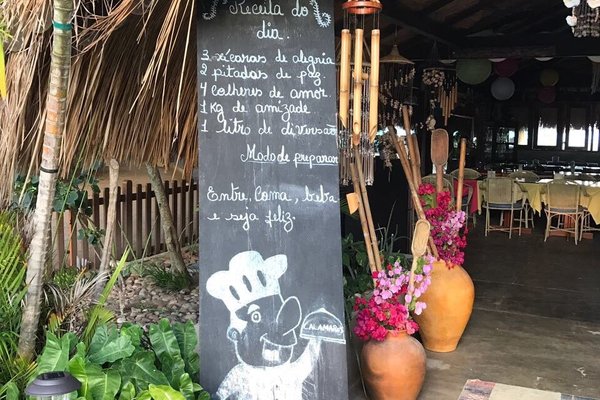 Receita do
dia.
3 xícaras de alegria
2 pitadas de paz
4 colheres de amor
1 kg de amizade
1 litro de diversão
Modo de preparar
Entre, coma, beba
e seja feliz.
CALAMARES